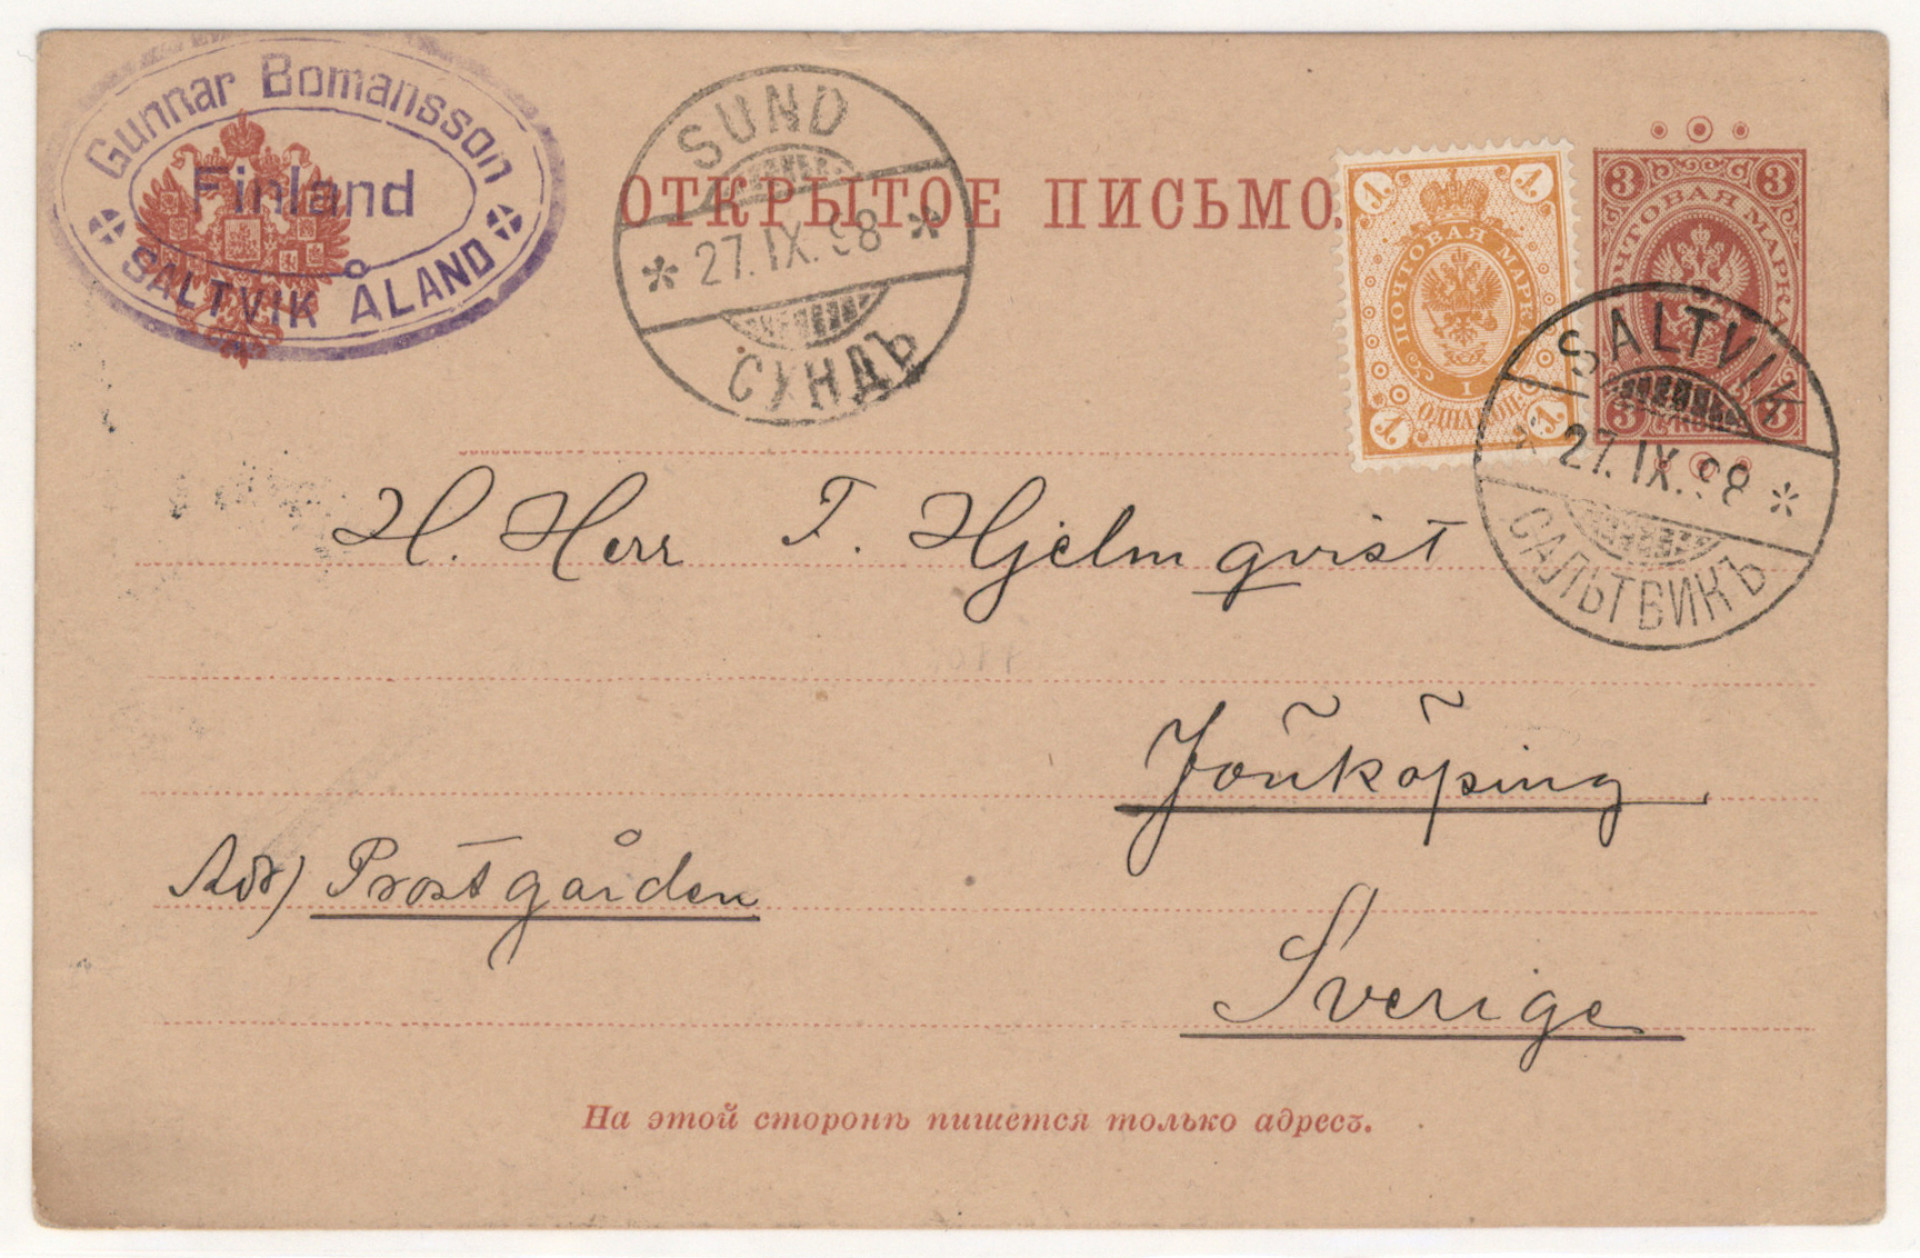 Gunnar Bomansson
Finland
SALTVIK ÅLAND
SUND
* 27.IX.98 *
СУНДЪ
ОТКРЫТОЕ ПИСЬМО.
1. 1.
ПОЧТОВАЯ МАРКА
1
ОДНА КОП.
1. 1.
3 3
ПОЧТОВАЯ МАРКА
3 КОП. 3
SALTVIK
* 27.IX.98 *
САЛЬТВИКЪ
H. Herr F. Hjelmqvist
Jönköping
Adr) Prostgården
Sverige
На этой сторонѣ пишется только адресъ.